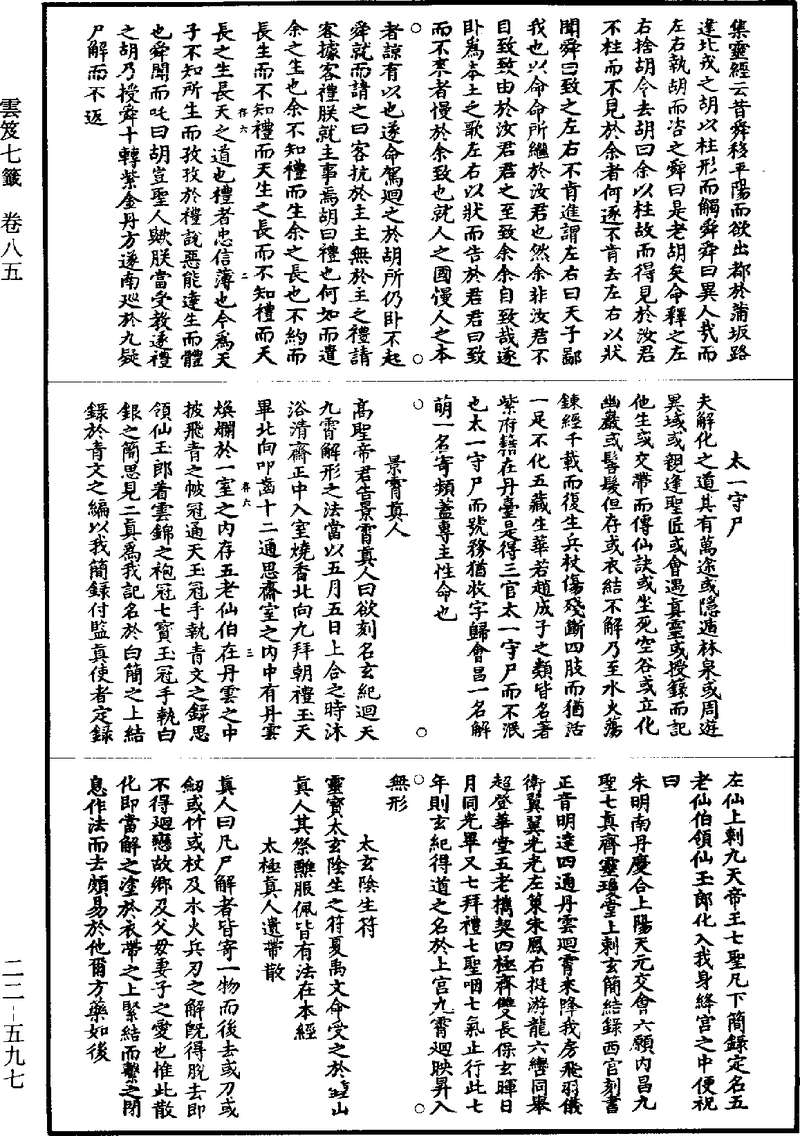 雲笈七籤 卷八五
二二-五九七
集靈經云昔舜移平陽而欲出都於蒲坂路
逢北戎之胡以柱形而觸舜舜曰異人哉而
左右執胡而咨之舜曰是老胡矣命釋之左
右捨胡令去胡曰余以柱故而得見於汝君
不柱而不見於余者何遂不肯去左右以狀
聞舜曰致之左右不肯進謂左右曰天子鄙
我也以命命所繼於汝君也然余非汝君不
自致致由於汝君君之至致余余自致哉遂
卧為本土之歌左右以狀而告於君君曰致
而不来者慢於余致也就人之國慢人之本
者諒有以也遂命駕迴之於胡所仍卧不起
舜就而請之曰客抗於主主無於主之禮請
客據客禮朕就主事焉胡曰禮也何如而遣
余之生也余不知禮而生余之長也不約而
長生而不知禮而天生之長而不知禮而天
存六 二
長之生長天之道也禮者忠信薄也今爲天
子不知所生而孜孜於禮說惡能達生而體
也舜聞而吒曰胡豈聖人歟朕當受教遂禮
之胡乃授舜十轉紫金丹方遂南廵於九疑
尸解而不返
太一守尸
夫解化之道其有萬途或隱遁林泉或周遊
異域或親逢聖匠或會遇真靈或授籙而記
他生或交帶而傳仙訣或生死空谷或立化
幽巖或髻髮但存或衣結不解乃至水火蕩
鍊經千載而復生兵杖傷殘斷四肢而猶活
一足不化五藏生華若趙成子之類皆名著
紫府籍在丹臺是得三官太一守尸而不泯
也太一守尸而號務猶收字歸會昌一名解
萌一名寄頻蓋專主性命也
景霄真人
高聖帝君告景霄真人曰欲刻名玄紀迴天
九霄解形之法當以五月五日上合之時沐
浴清齋正中入室燒香北向九拜朝禮玉天
畢北向叩齒十二通思齋室之内中有丹雲
存六 三
煥爛於一室之内存五老仙伯在丹雲之中
披飛青之帔冠通天玉冠手執青文之錄思
領仙玉郎着雲錦之袍冠七寳玉冠手執白
銀之簡思見二真爲我記名於白簡之上結
錄於青文之編以我簡錄付監真使者定錄
左仙上剌九天帝王七聖凡下簡錄定名五
老仙伯領仙玉郎化入我身絳宫之中便祝
曰
朱明南丹慶合上陽天元交會六願内昌九
聖七真齊靈瓊堂上剌玄簡結錄西官刻書
正音明達四通丹雲迴霄来降我房飛羽儀
衛翼翼光光左策朱鳳右挺游龍六轡同舉
超登華堂五老携契四極齊雙長保玄暉日
月同光畢又七拜禮七聖咽七氣止行此七
年則玄紀得道之名於上宫九霄迴映昇入
無形
太玄陰生符
靈寳太玄陰生之符夏禹文命受之於鍾山
真人其祭醮服佩皆有法在本經
太極真人遺帶散
真人曰凡尸解者皆寄一物而後去或刀或
劒或竹或杖及水火兵刃之解旣得脫去即
不得迴戀故鄉及父母妻子之愛也惟此散
化即當解之塗於衣帶之上緊結而繫之閉
息作法而去頗易於他爾方藥如後